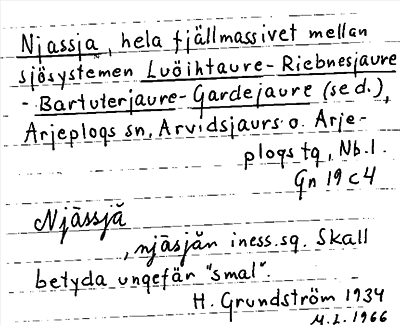 Njassja, hela fjällmassivet mellan
sjösystemen Luöihtaure-Riebnesjaure
- Bartuterjaure-Gardejaure (se d.),
Arjeplogs sn, Arvidsjaurs o. Arje-
plogs tg, Nb.l.
Gn 19 c 4
Njässjă
, njäsjăn iness.sg. Skall
betyda ungefär "smal".
H. Grundström 1934
1966